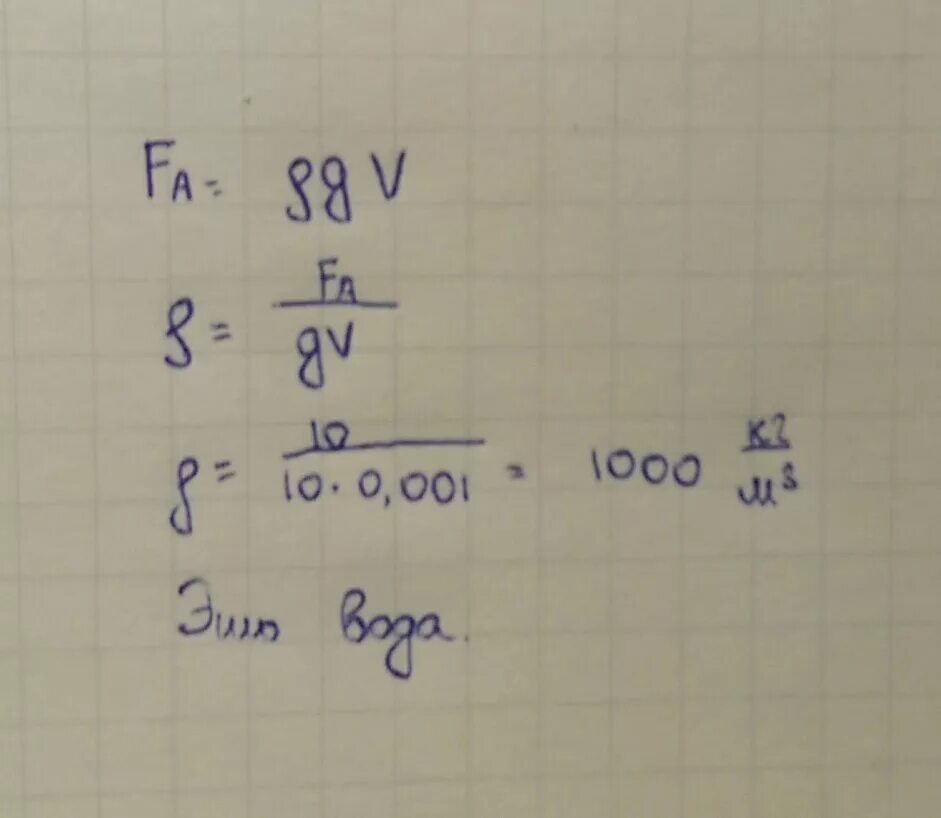 F_A = ρgV
ρ = F_A / gV
ρ = 10 / 10 · 0,001 = 1000 кг / м³
Это вода.